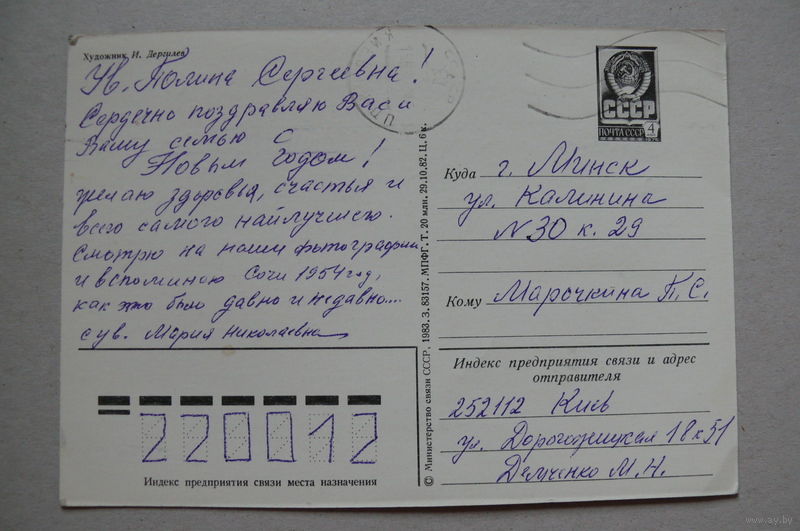 Художник И. Дергилев
Ув. Полина Сергеевна!
Сердечно поздравляю Вас и
Вашу семью с
Новым годом!
желаю здоровья, счастья и
всего самого наилучшего.
Смотрю на наши фотографии
и вспоминаю Сочи 1954 год,
как это было давно и недавно...
с ув. Мария Николаевна
220012
Индекс предприятия связи места назначения
© Министерство связи СССР, 1983. З. 83157. МПФГ. Т. 20 млн. 29.10.82. Ц. 6 к.
СССР
ПОЧТА СССР 4
Куда г. Минск
ул. Калинина
№30 к. 29
Кому Марочкина П.С.
Индекс предприятия связи и адрес
отправителя
252112 Киев
ул. Дорогожицкая 18 к 51
Демченко М.Н.
www.ay.by